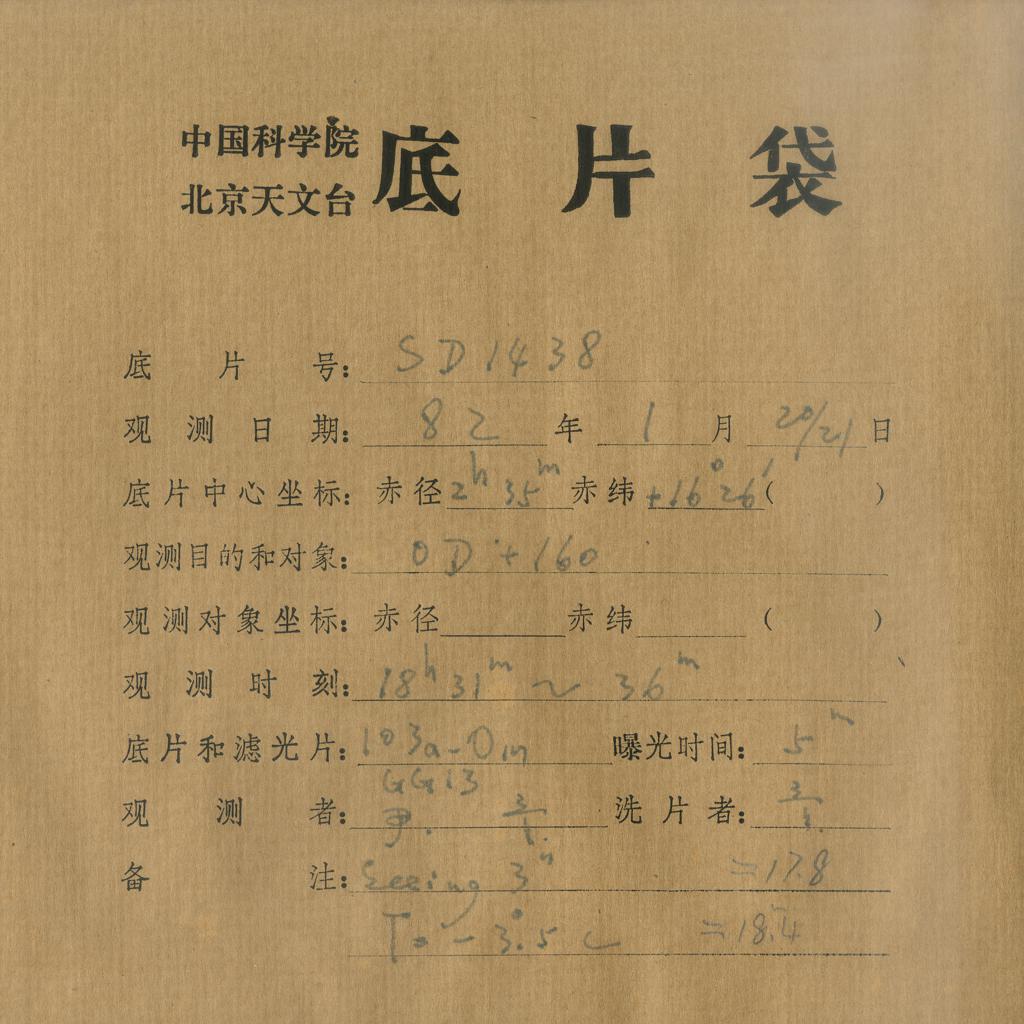 中国科学院
北京天文台
底片袋
底片号: SD1438
观测日期: 82年1月20/21日
底片中心坐标: 赤径2h35m赤纬+16°26′( )
观测目的和对象: OD+160
观测对象坐标: 赤径 赤纬 ( )
观测时刻: 18h31m~36m
底片和滤光片: 103a-O 曝光时间: 5m
GG13
观测者: 洗片者:
备注: Seeing 3" =17.8
T= -3°.5 C =18.4